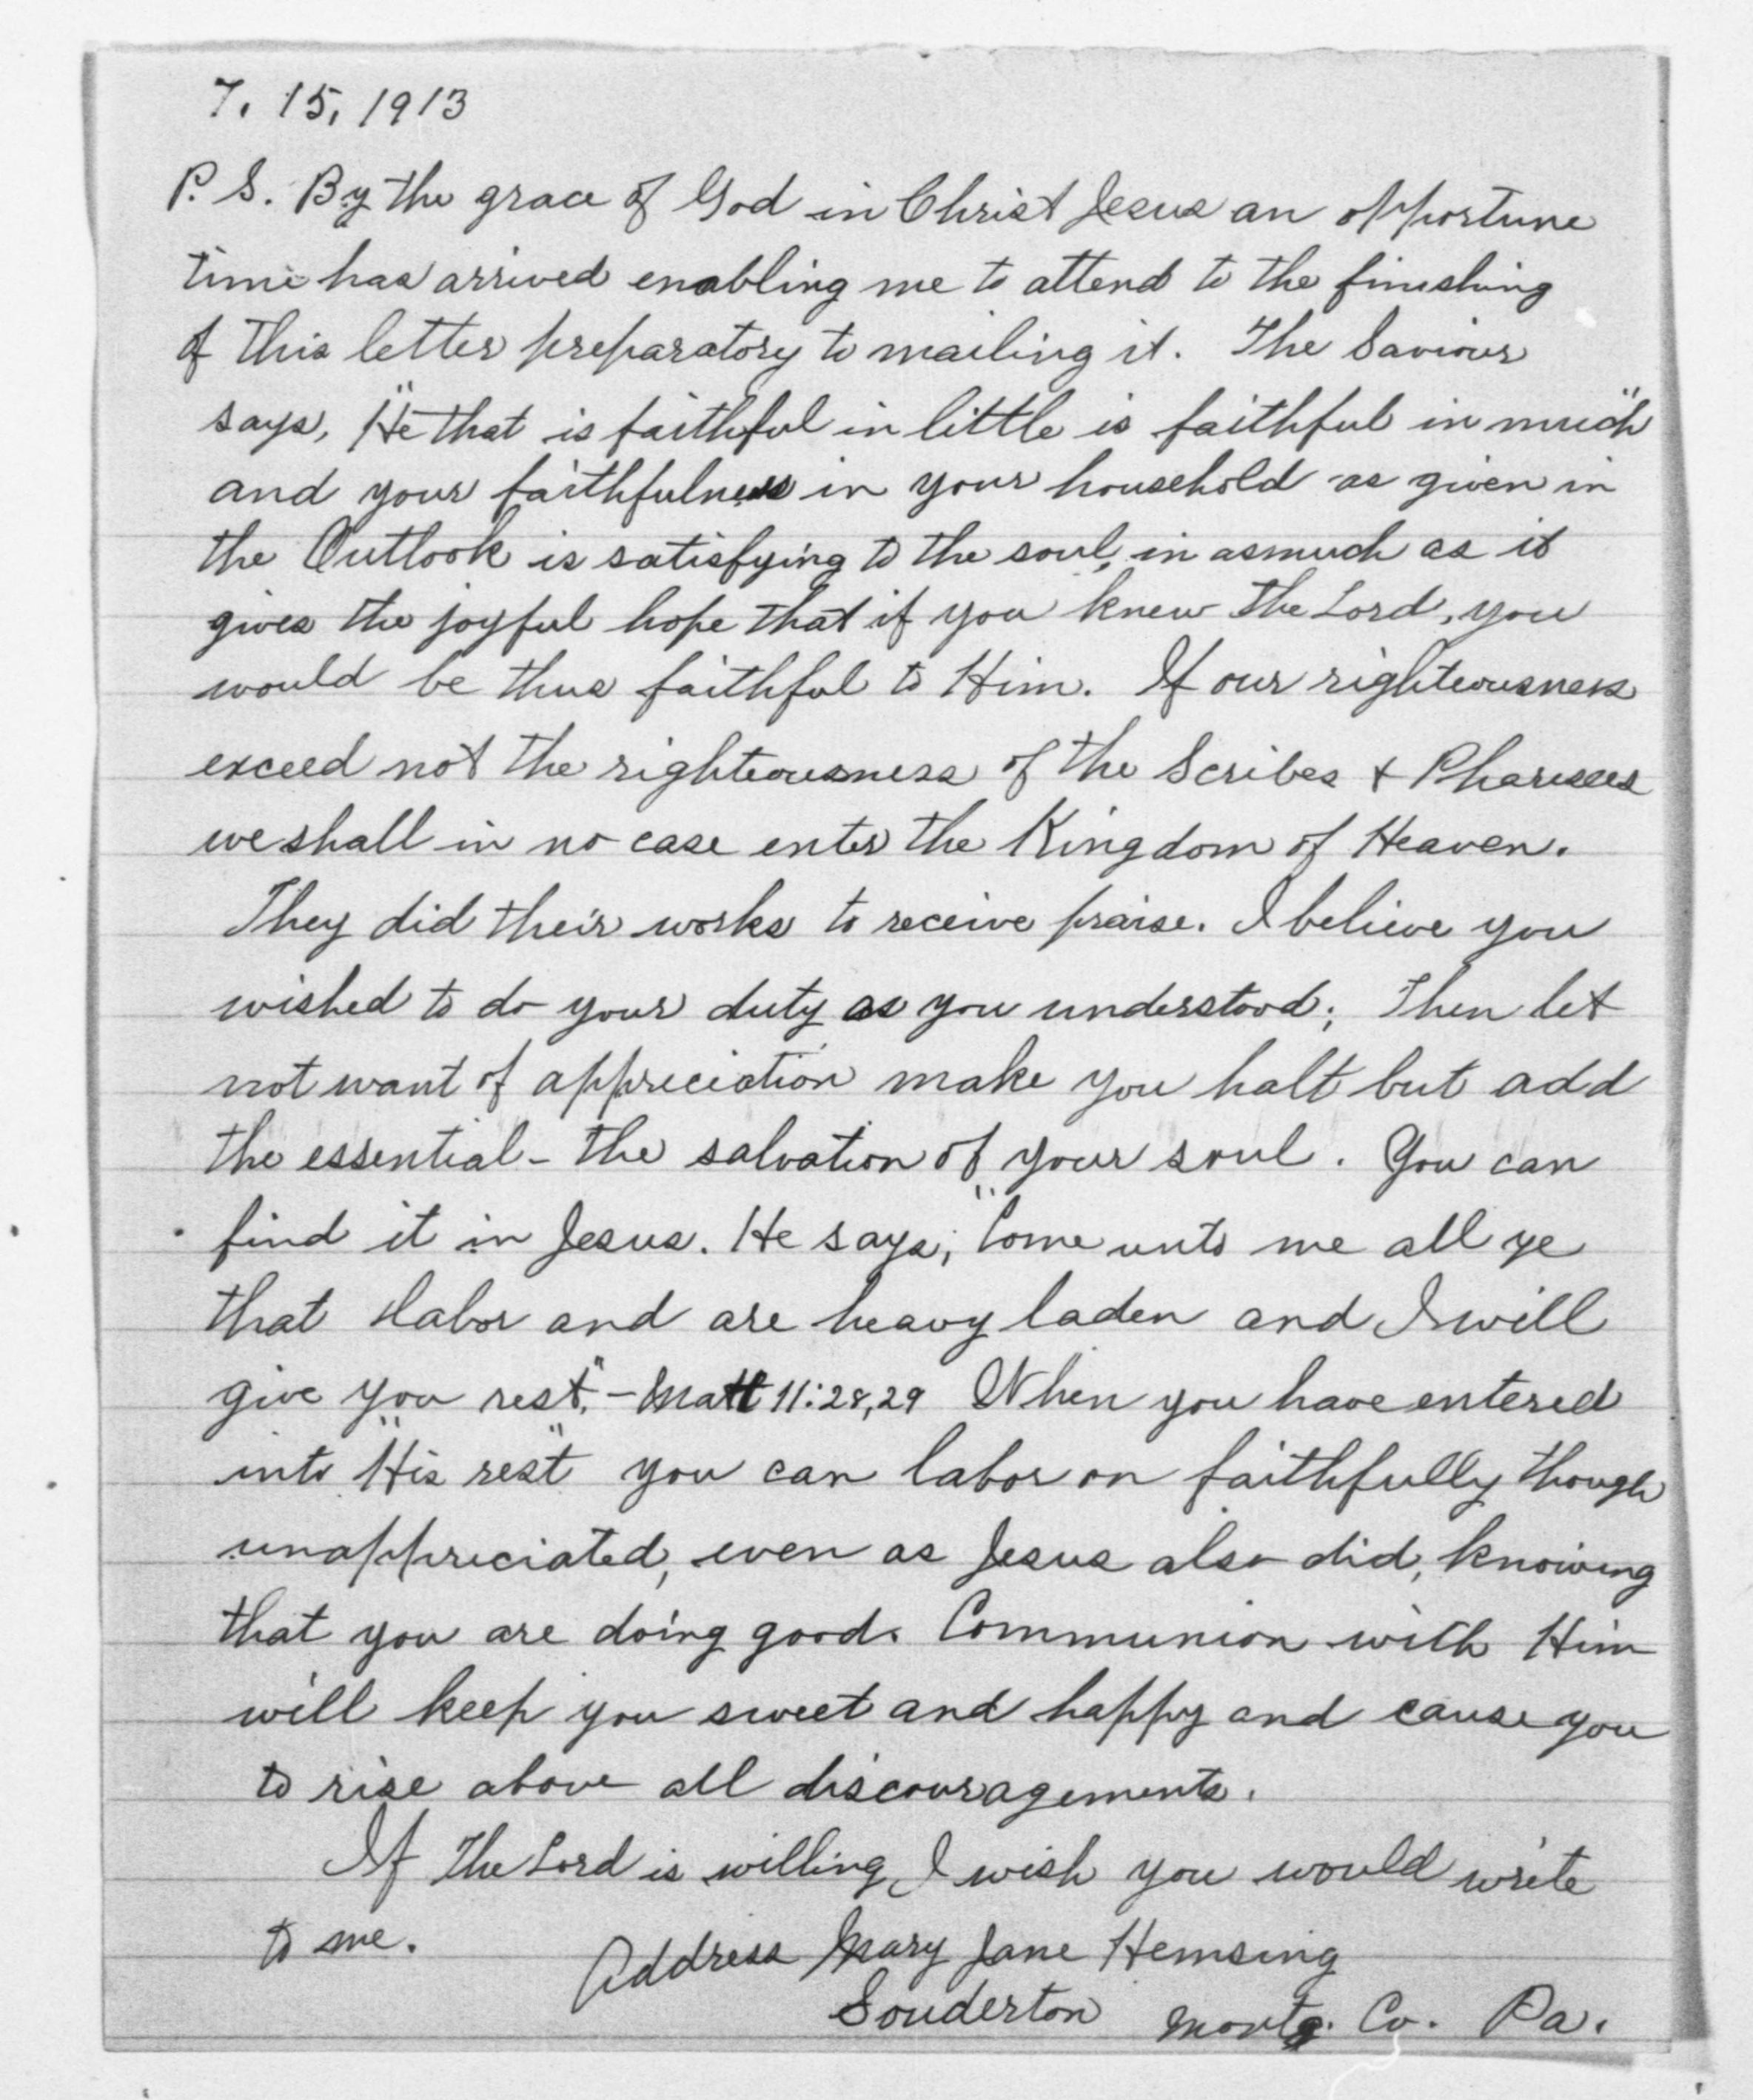 7. 15, 1913
P. S. By the grace of God in Christ Jesus an opportune
time has arrived enabling me to attend to the finishing
of this letter preparatory to mailing it. The Saviour
says, "He that is faithful in little is faithful in much"
and your faithfulness in your household as given in
the Outlook is satisfying to the soul, in asmuch as it
gives the joyful hope that if you knew the Lord, you
would be thus faithful to Him. If our righteousness
exceed not the righteousness of the Scribes & Pharisees
we shall in no case enter the Kingdom of Heaven.
They did their works to receive praise. I believe you
wished to do your duty as you understood; Then let
not want of appreciation make you halt but add
the essential - the salvation of your soul. You can
find it in Jesus. He says, "Come unto me all ye
that labor and are heavy laden and I will
give you rest." - Matt 11:28,29 When you have entered
into "His rest" you can labor on faithfully though
unappreciated, even as Jesus also did, knowing
that you are doing good. Communion with Him
will keep you sweet and happy and cause you
to rise above all discouragements.
If the Lord is willing, I wish you would write
to me.
Address Mary Jane Hemsing
Souderton Montg. Co. Pa.